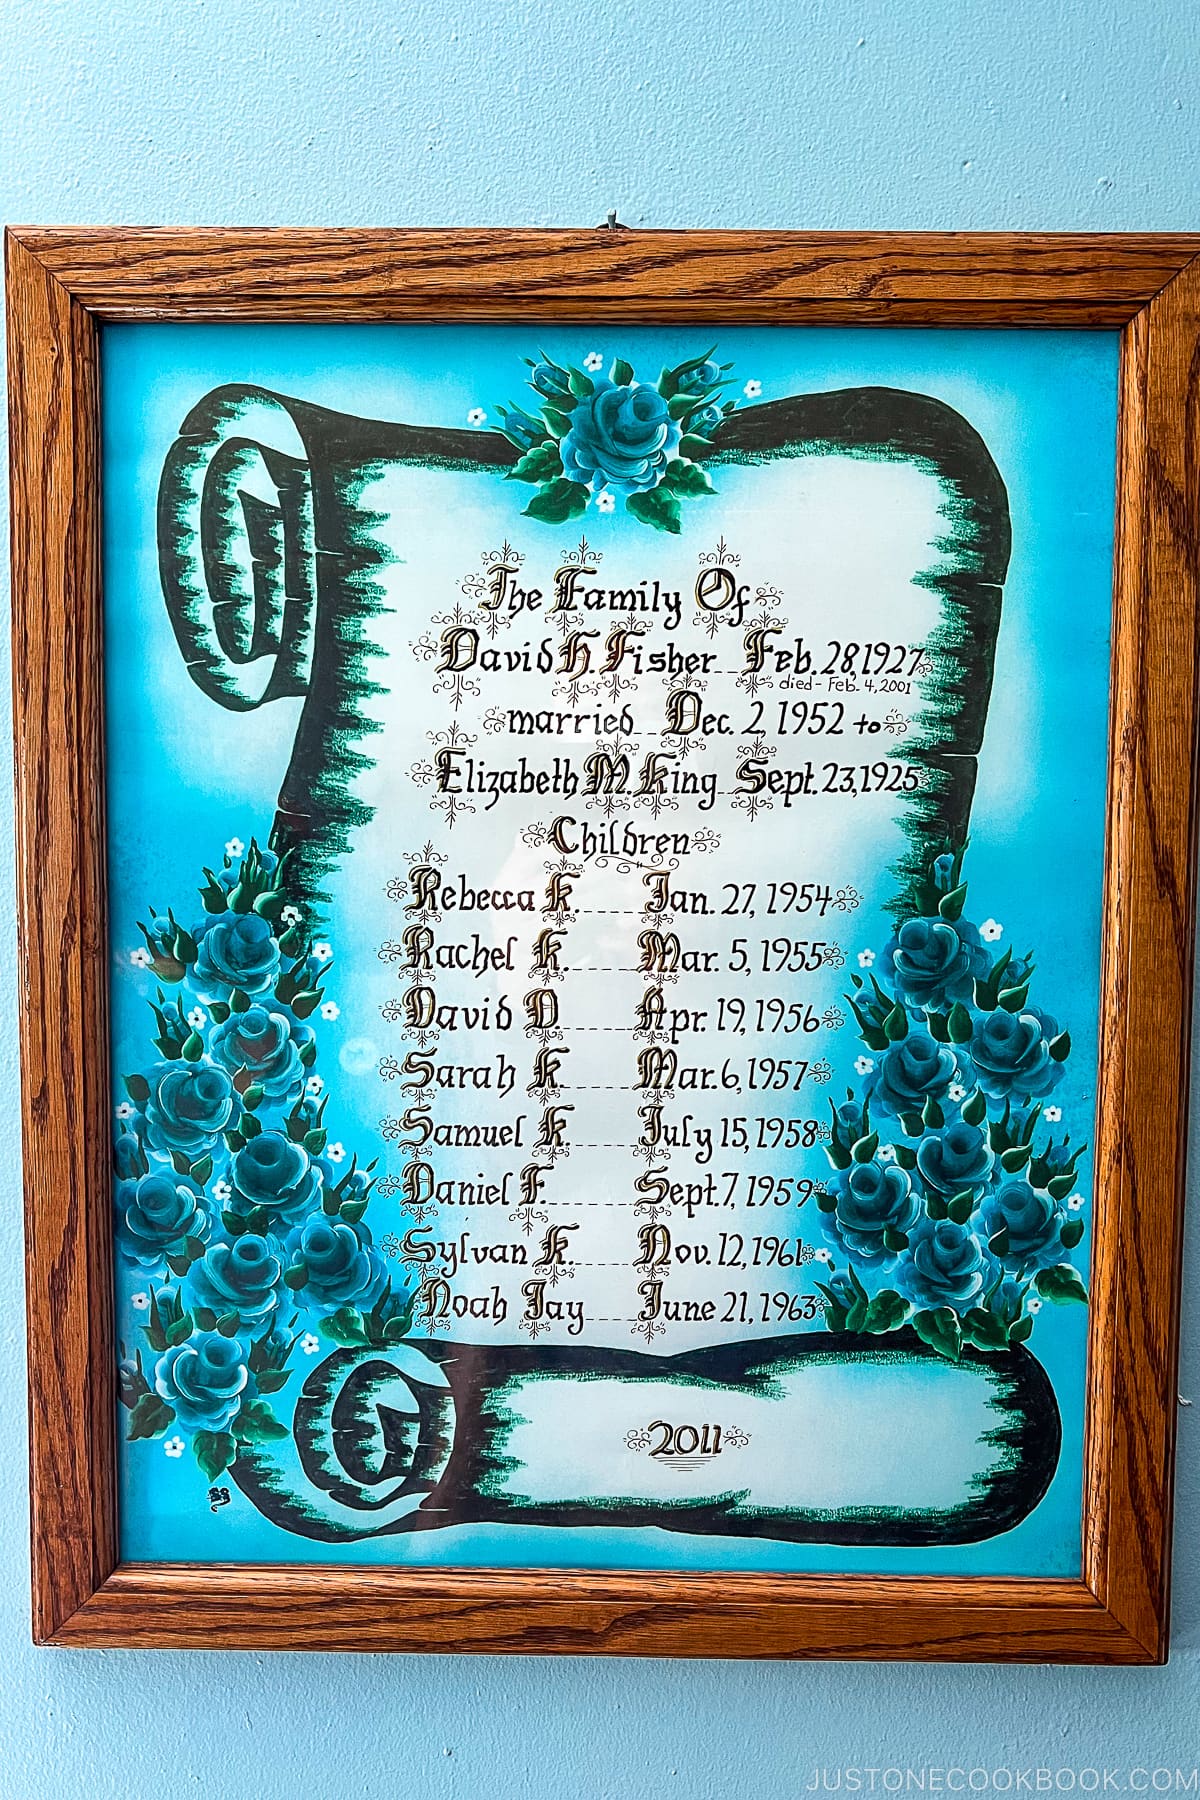 The Family Of
David H. Fisher Feb. 28, 1927
died - Feb. 4, 2001
married Dec. 2, 1952 to
Elizabeth M. King Sept. 23, 1925
Children
Rebecca K. Jan. 27, 1954
Rachel K. Mar. 5, 1955
David D. Apr. 19, 1956
Sarah K. Mar. 6, 1957
Samuel K. July 15, 1958
Daniel F. Sept. 7, 1959
Sylvan K. Nov. 12, 1961
Noah Jay June 21, 1963
2011
JUSTONECOOKBOOK.COM